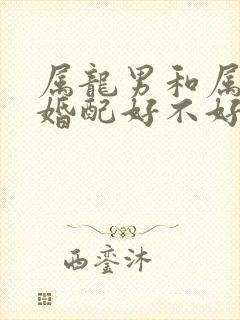 属龍男和属
婚配好不好
西銮沐